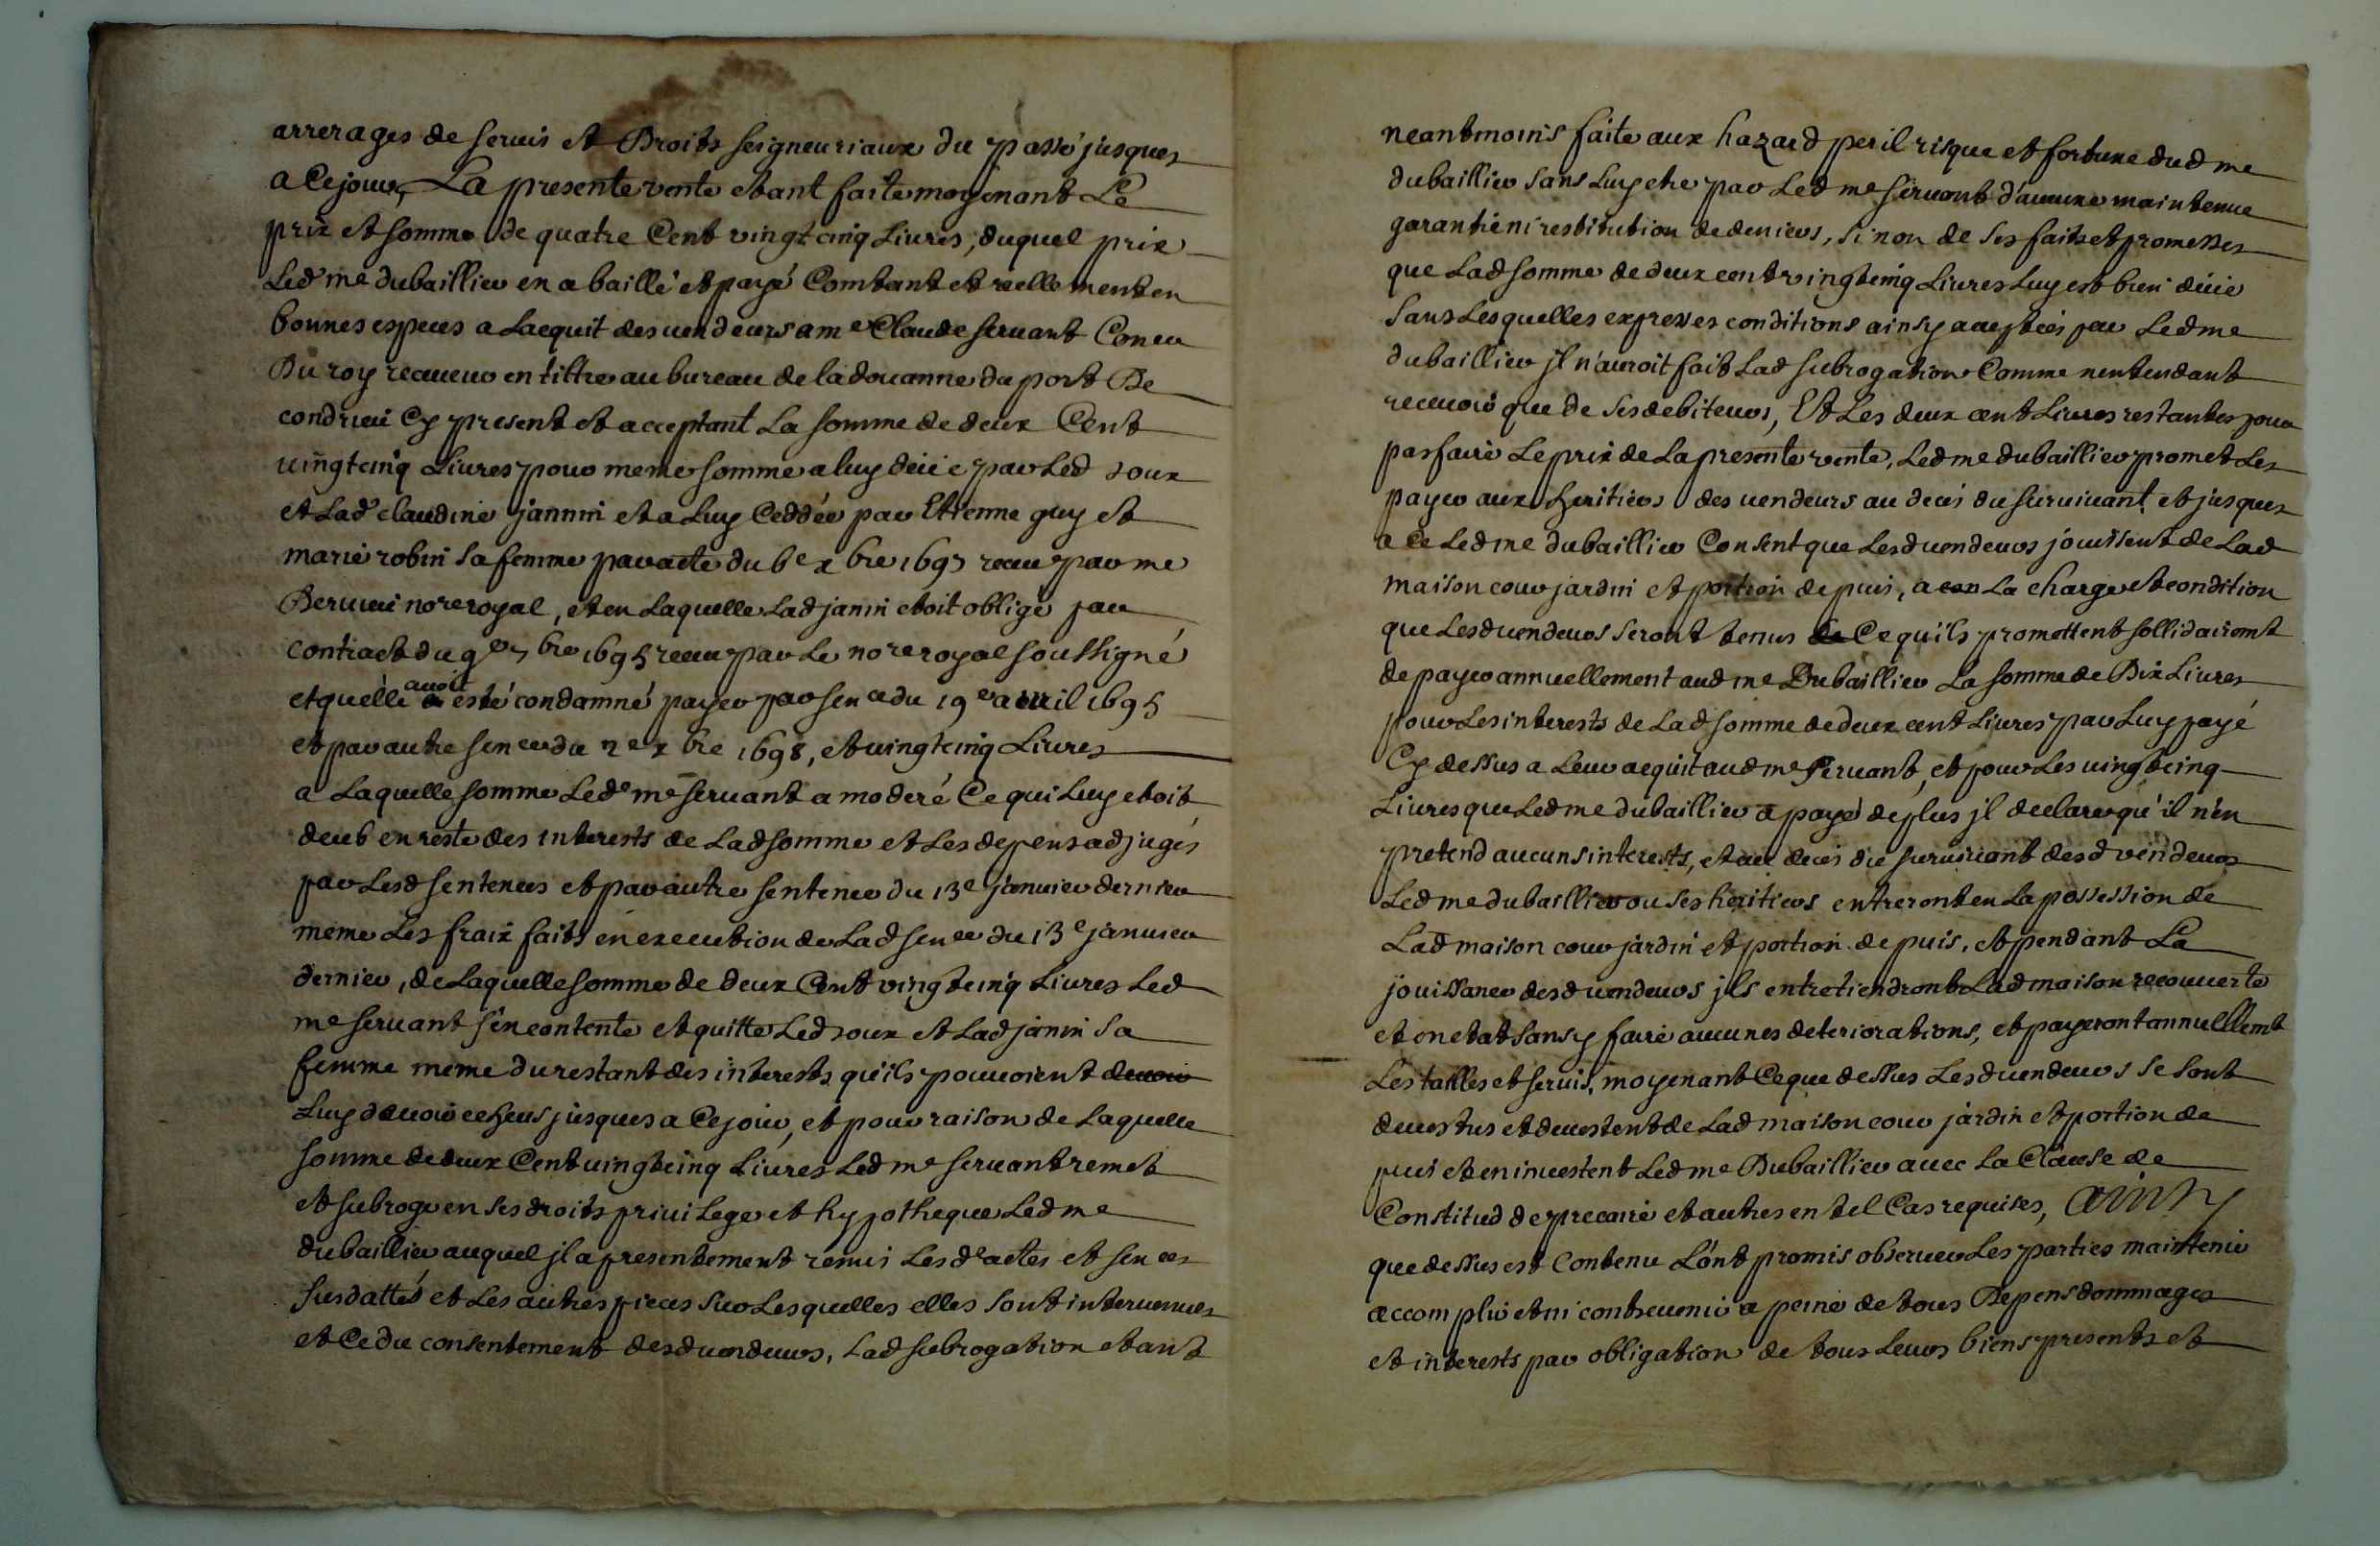 arrerages de servis et Droits seigneuriaux du passé jusques
a Ce jour, La presente vente etant faite moyenant Le
prix et somme de quatre Cent vingt cinq Livres, duquel prix
Led me dubaillier en a baillé et payé Comtant et reellement en
bonnes especes a Lacquit des vendeurs a me Claude servant Coner
Du roy receveur en tiltre au bureau de la douanne du port De
condrieu Cy present et acceptant La somme de deux Cent
vingt cinq Livres pour meme somme a luy deüe par Led roux
et Lad claudine jannin et a Luy Ceddée par Etienne guy et
marie robin sa femme par acte du 6e xbre 1697 receu par me
nore royal, et en Laquelle Lad janin etoit obligé par
contract du 9e 7bre 1695 receu par Le nore royal soussigné
et quelle avoit esté condamné payer par sence du 19e avril 1695
et par autre sence du 2e xbre 1698, et vingt cinq Livres
a Laquelle somme Led me servant a moderé Ce qui Luy etoit
deub en reste des interests de Lad somme et Les depens adjugés
par Lesd sentences et par autre sentence du 13e janvier dernier
meme Les fraix faits en execution de Lad sence du 13e janvier
dernier, de Laquelle somme de deux Cent vingt cinq Livres Led
me servant s'en contente et quitte Led roux et Lad janin sa
femme meme du restant des interests qu'ils pouvoient devoir
Luy devoir echeus jusques a Ce jour, et pour raison de Laquelle
somme de deux Cent vingt cinq Livres Led me servant remet
et subroge en ses droits privilege et hypotheque Led me
dubaillier auquel jl a presentement remis Lesd actes et sences
susdattés et Les autres pieces sur Lesquelles elles sont intervenues
et Ce du consentement desd vendeurs, Lad subrogation etant
neantmoins faite aux hazard peril risque et fortune dud me
dubaillier sans Luy etre par Led me servant d'aucune maintenue
garantie ni restitution de deniers, si non de ses faits et promesses
que Lad somme de deux cent vingt cinq Livres Luy est bien deüe
sans Lesquelles expresses conditions ainsy acceptées par Led me
dubaillier jl n'auroit fait Lad subrogation Comme nentendant
recevoir que de ses debiteurs, Et Les deux cent Livres restantes pour
parfaire Le prix de La presente vente, Led me dubaillier promet Les
payer aux heritiers des vendeurs au decés du survivant et jusques
a ce Led me dubaillier Consent que Lesd vendeurs jouissent de Lad
maison cour jardin et portion de puis, a con La charge et condition
que Lesd vendeurs seront tenus de Ce qu'ils promettent sollidairemt
de payer annuellement aud me Dubaillier La somme de Dix Livres
pour Les interests de Lad somme de deux cent Livres par Luy payé
Cy dessus a Leur acquit aud me servant, et pour Les vingt cinq
Livres que Led me dubaillier a payé de plus jl declare qu'il n'en
pretend aucuns interests, et au decés du survivant desd vendeurs
Led me dubaillier ou ses heritiers entreront en La possession de
Lad maison cour jardin et portion de puis, et pendant La
jouissance desd vendeurs jls entretiendront Lad maison recouverte
et en etat sans y faire aucunes deteriorations, et payeront annuellemt
Les tailles et servis, moyenant Ce que dessus Lesd vendeurs se sont
devestus et devestent de Lad maison cour jardin et portion de
puis et en investent Led me Dubaillier avec La Clause de
Constitud de precaire et autres en tel Cas requises, ainsy
que dessus est Contenu L'ont promis observer Les parties maintenir
accomplir et ni contrevenir a peine de tous Depens dommages
et interests par obligation de tous Leurs biens presents et